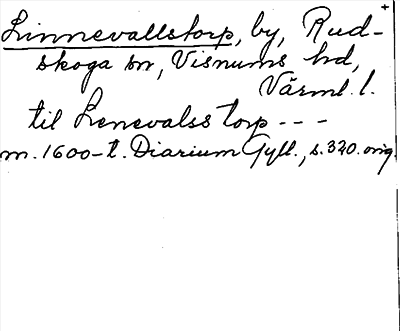 Linnevallstorp, by, Rud-
skoga sn, Visnums hd,
Värml. l.
til Lenevalss torp - - -
m. 1600-t. Diarium Gyll., s. 320. orig.